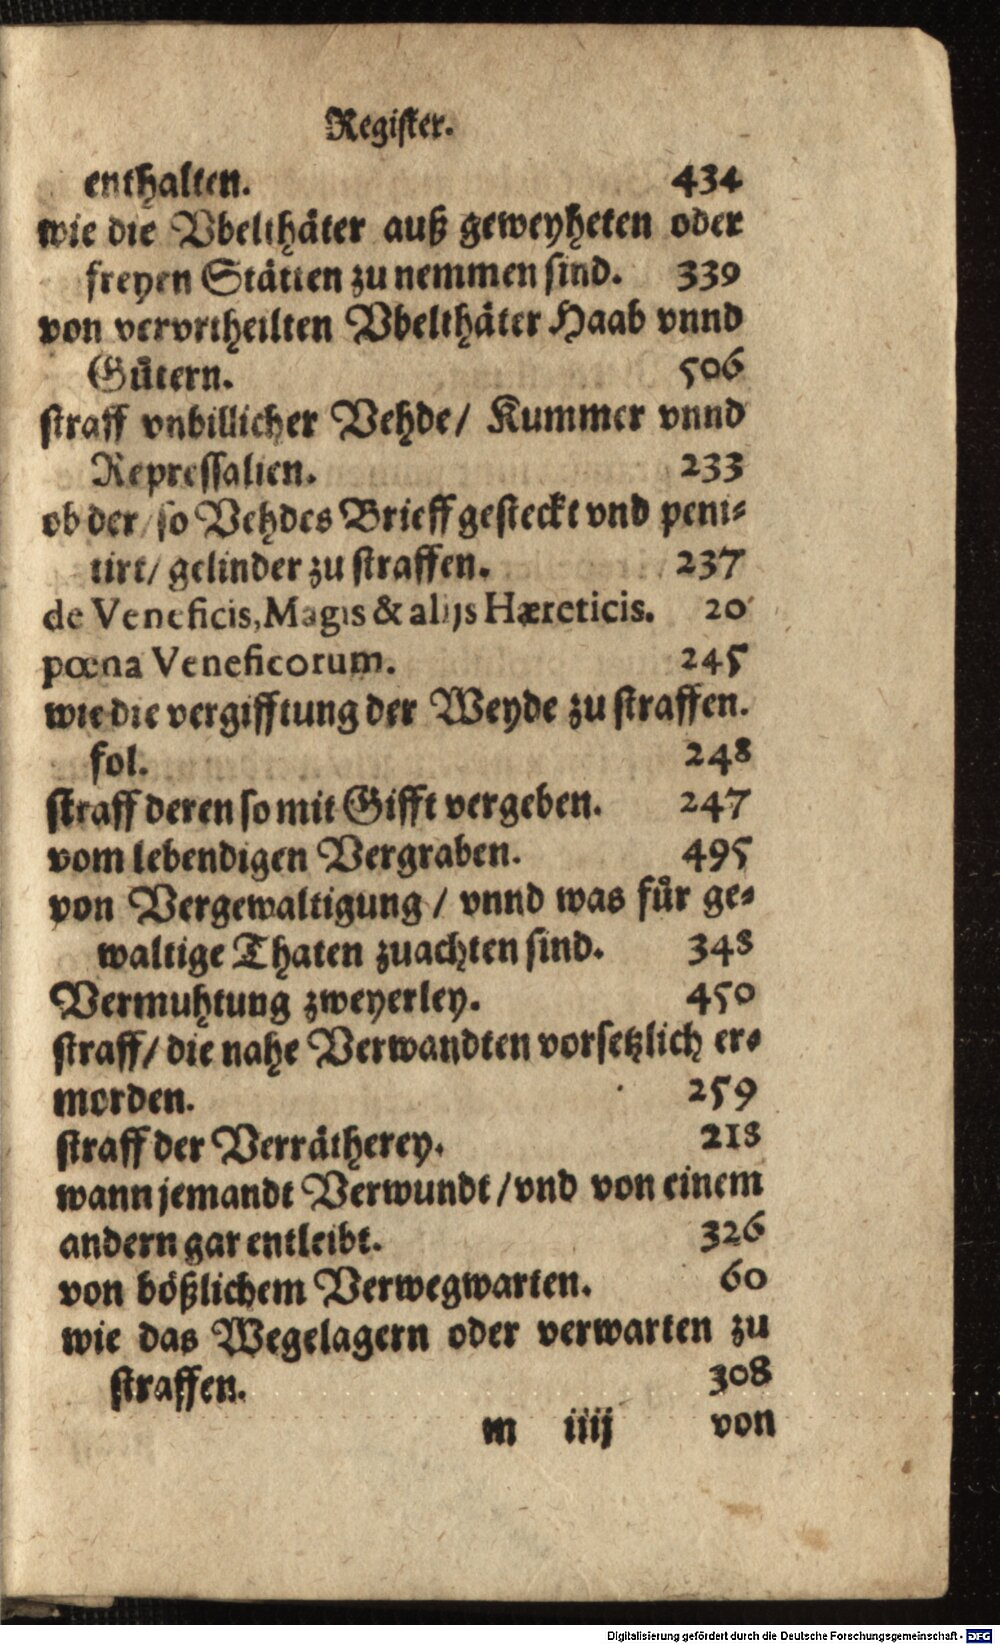 Register.
enthalten. 434
wie die Vbelthäter auß geweyheten oder
freyen Stätten zu nemmen sind. 339
von vervrtheilten Vbelthäter Haab vnnd
Gütern. 506
straff vnbillicher Vehde/ Kummer vnnd
Repressalien. 233
ob der/ so Vehdes Brieff gesteckt vnd peni-
tirt/ gelinder zu straffen. 237
de Veneficis, Magis & alijs Hæreticis. 20
pœna Veneficorum. 245
wie die vergifftung der Weyde zu straffen.
fol. 248
straff deren so mit Gifft vergeben. 247
vom lebendigen Vergraben. 495
von Vergewaltigung / vnnd was für ge-
waltige Thaten zuachten sind. 348
Vermuhtung zweyerley. 450
straff/ die nahe Verwandten vorsetzlich er-
morden. 259
straff der Verrätherey. 218
wann jemandt Verwundt / vnd von einem
andern gar entleibt. 326
von bößlichem Verwegwarten. 60
wie das Wegelagern oder verwarten zu
straffen. 308
m iiij von
Digitalisierung gefördert durch die Deutsche Forschungsgemeinschaft - DFG